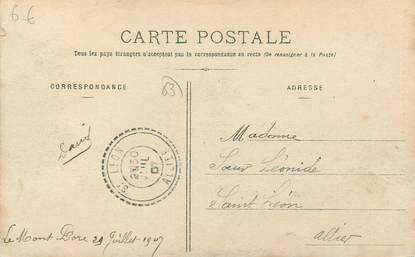 6 €
CARTE POSTALE
Tous les pays étrangers n'acceptent pas la correspondance au recto (Se renseigner à la Poste)
CORRESPONDANCE
63
ADRESSE
David
ST LEON
30
JUIL
07
ALLIER
Madame
Sœur Léonide
Saint Léon
allier
Le Mont Dore 29 Juillet 1907